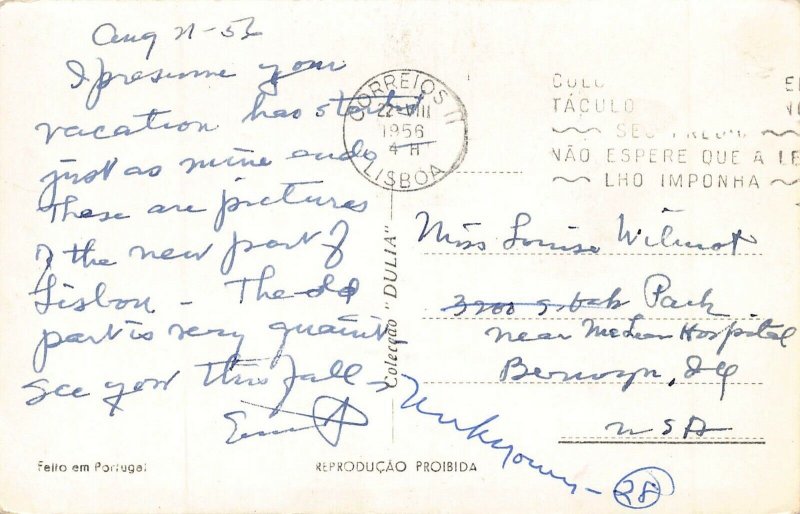 Aug 21-56
I presume your
vacation has started
just as mine ends
These are pictures
of the new part of
Lisbon - The old
part is very quaint
see you this fall -
Feito em Portugal
CORREIOS II
22 VIII
1956
4 H
LISBOA
TÁCULO
SEU
NÃO ESPERE QUE A LE
LHO IMPONHA
Colecção "DULIA"
Miss Louise Wilmot
3900 S Oak Park
near McLean Hospital
Berwyn, Ill
USA
Unknown - 28
REPRODUÇÃO PROIBIDA